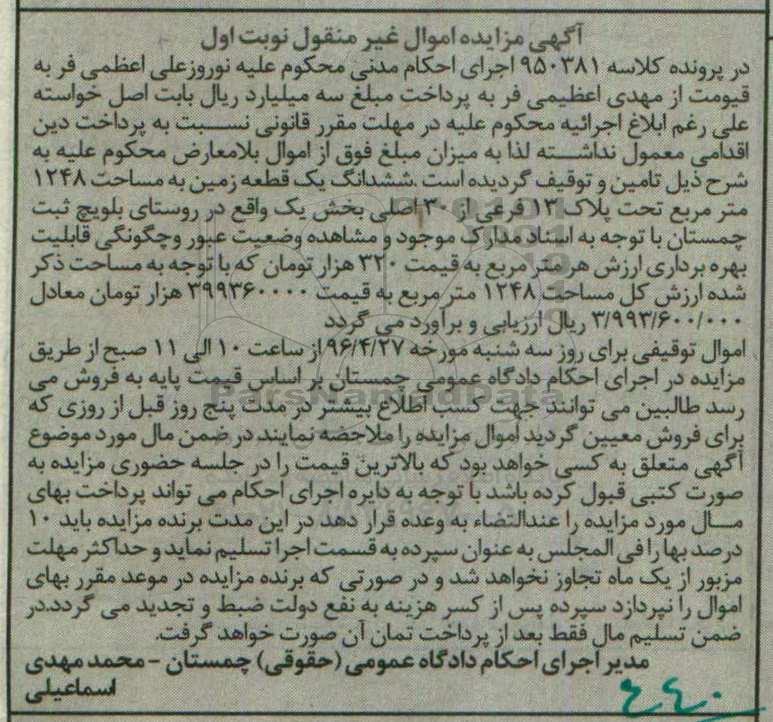 آگهی مزایده اموال غیر منقول نوبت اول
در پرونده کلاسه ۹۵۰۳۸۱ اجرای احکام مدنی محکوم علیه نوروزعلی اعظمی فر به
قیومت از مهدی اعظیمی فر به پرداخت مبلغ سه میلیارد ریال بابت اصل خواسته
علی رغم ابلاغ اجرائیه محکوم علیه در مهلت مقرر قانونی نسبت به پرداخت دین
اقدامی معمول نداشته لذا به میزان مبلغ فوق از اموال بلامعارض محکوم علیه به
شرح ذیل تامین و توقیف گردیده است .ششدانگ یک قطعه زمین به مساحت ۱۲۴۸
متر مربع تحت پلاک ۱۳ فرعی از ۳۰ اصلی بخش یک واقع در روستای بلویچ ثبت
چمستان با توجه به اسناد مدارک موجود و مشاهده وضعیت عبور وچگونگی قابلیت
بهره برداری ارزش هر متر مربع به قیمت ۳۲۰ هزار تومان که با توجه به مساحت ذکر
شده ارزش کل مساحت ۱۲۴۸ متر مربع به قیمت ۳۹۹۳۶۰۰۰۰ هزار تومان معادل
۳/۹۹۳/۶۰۰/۰۰۰ ریال ارزیابی و برآورد می گردد
اموال توقیفی برای روز سه شنبه مورخه ۹۶/۴/۲۷ از ساعت ۱۰ الی ۱۱ صبح از طریق
مزایده در اجرای احکام دادگاه عمومی چمستان بر اساس قیمت پایه به فروش می
رسد طالبین می توانند جهت کسب اطلاع بیشتر در مدت پنج روز قبل از روزی که
برای فروش معیین گردید اموال مزایده را ملاحضه نمایند در ضمن مال مورد موضوع
آگهی متعلق به کسی خواهد بود که بالاترین قیمت را در جلسه حضوری مزایده به
صورت کتبی قبول کرده باشد با توجه به دایره اجرای احکام می تواند پرداخت بهای
مال مورد مزایده را عندالتضاء به وعده قرار دهد در این مدت برنده مزایده باید ۱۰
درصد بها را فی المجلس به عنوان سپرده به قسمت اجرا تسلیم نماید و حداکثر مهلت
مزبور از یک ماه تجاوز نخواهد شد و در صورتی که برنده مزایده در موعد مقرر بهای
اموال را نپردازد سپرده پس از کسر هزینه به نفع دولت ضبط و تجدید می گردد.در
ضمن تسلیم مال فقط بعد از پرداخت تمان آن صورت خواهد گرفت.
مدیر اجرای احکام دادگاه عمومی (حقوقی) چمستان - محمد مهدی
اسماعیلی
۴۴۰
ParsNamadData